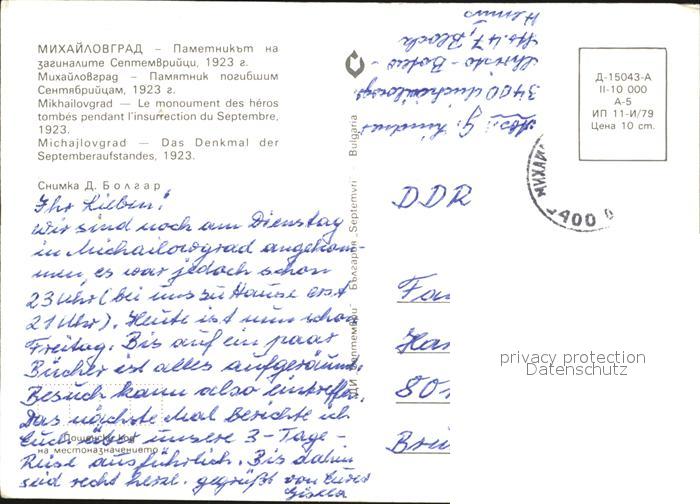 МИХАЙЛОВГРАД – Паметникът на
загиналите Септемврийци, 1923 г.
Михайловград – Памятник погибшим
Сентябрийцам, 1923 г.
Mikhailovgrad — Le monoument des héros
tombés pendant l'insurrection du Septembre,
1923.
Michajlovgrad — Das Denkmal der
Septemberaufstandes, 1923.
Снимка Д. Болгар
Ihr Lieben!
Wir sind noch am Dienstag
in Michailowgrad angekom-
men, es war jedoch schon
23 Uhr (bei uns zu Hause erst
21 Uhr). Heute ist nun schon
Freitag. Bis auf ein paar
Bücher ist alles aufgeräumt.
Besuch kann also eintreffen.
Das nächste Mal berichte ich
Euch über unsere 3-Tage-
Reise ausführlich. Bis dahin
seid recht herzl. gegrüßt von Eurer
Gisela
Пощенски код
на местоназначението
ДИ „Септември" България „Septemvri" Bulgaria
3400 Michailowgr.
Christo-Botew-
No. 47, Block
DDR
Д-15043-А
II-10 000
А-5
ИП 11-И/79
Цена 10 ст.
МИХАЙ
3400
Fa
Ha
80
privacy protection
Datenschutz